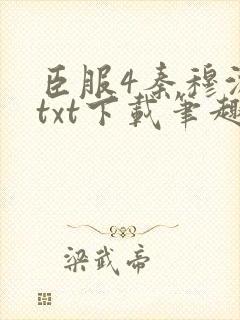 臣服4秦穆
txt下載筆趣
梁武帝